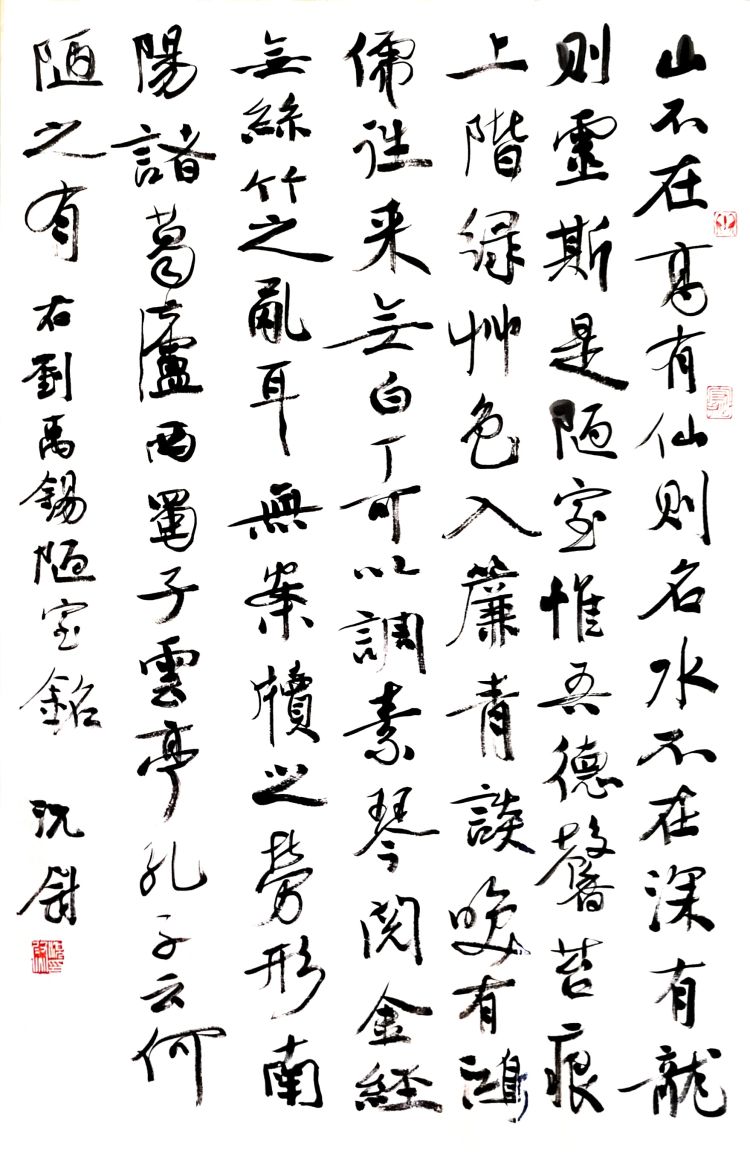 山不在高有仙则名水不在深有龍
则靈斯是陋室惟吾德馨苔痕
上階緑艸色入簾青談咲有鴻
儒往来無白丁可以調素琴閲金経
無絲竹之亂耳無案牘之勞形南
陽諸葛廬西蜀子雲亭孔子云何
陋之有 右劉禹錫陋室銘